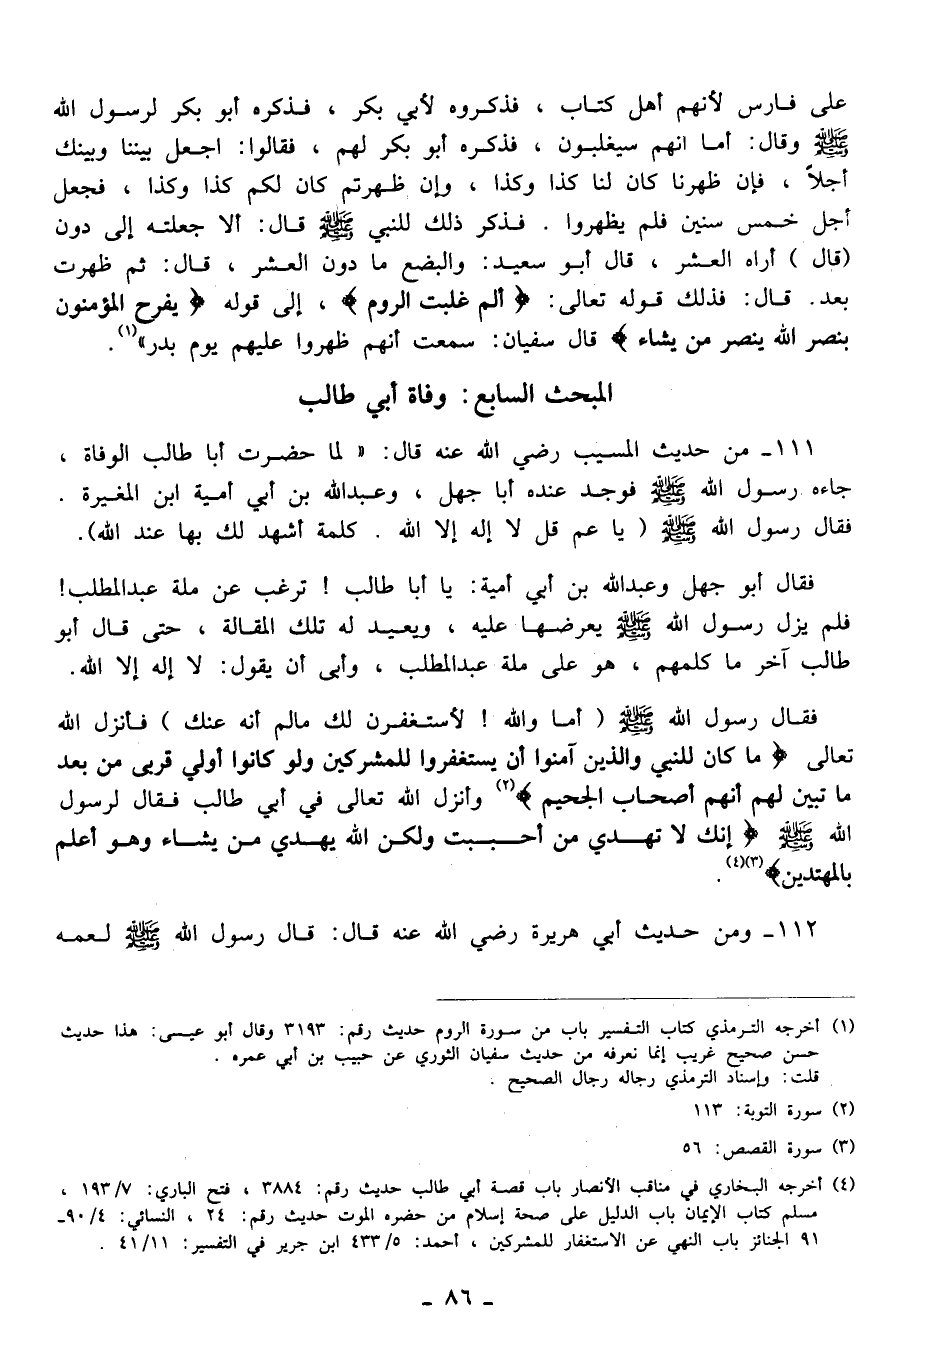 على فارس لأنهم أهل كتاب ، فذكروه لأبي بكر ، فذكره أبو بكر لرسول الله
ﷺ وقال: أما انهم سيغلبون ، فذكره أبو بكر لهم ، فقالوا: اجعل بيننا وبينك
أجلاً ، فإن ظهرنا كان لنا كذا وكذا ، وإن ظهرتم كان لكم كذا وكذا ، فجعل
أجل خمس سنين فلم يظهروا . فذكر ذلك للنبي ﷺ قال: ألا جعلته إلى دون
(قال ) أراه العشر ، قال أبو سعيد: والبضع ما دون العشر ، قال: ثم ظهرت
بعد. قال: فذلك قوله تعالى: ﴿ ألم غلبت الروم ﴾ ، إلى قوله ﴿ يفرح المؤمنون
بنصر الله ينصر من يشاء ﴾ قال سفيان: سمعت أنهم ظهروا عليهم يوم بدر»(١).
المبحث السابع: وفاة أبي طالب
١١١ـ من حديث المسيب رضي الله عنه قال: « لما حضرت أبا طالب الوفاة ،
جاءه رسول الله ﷺ فوجد عنده أبا جهل ، وعبدالله بن أبي أمية ابن المغيرة .
فقال رسول الله ﷺ ( يا عم قل لا إله إلا الله . كلمة أشهد لك بها عند الله).
فقال أبو جهل وعبدالله بن أبي أمية: يا أبا طالب ! ترغب عن ملة عبدالمطلب!
فلم يزل رسول الله ﷺ يعرضها عليه ، ويعيد له تلك المقالة ، حتى قال أبو
طالب آخر ما كلمهم ، هو على ملة عبدالمطلب ، وأبى أن يقول: لا إله إلا الله.
فقال رسول الله ﷺ ( أما والله ! لأستغفرن لك مالم أنه عنك ) فأنزل الله
تعالى ﴿ ما كان للنبي والذين آمنوا أن يستغفروا للمشركين ولو كانوا أولي قربى من بعد
ما تبين لهم أنهم أصحاب الجحيم ﴾(٢) وأنزل الله تعالى في أبي طالب فقال لرسول
الله ﷺ ﴿ إنك لا تهدي من أحببت ولكن الله يهدي من يشاء وهو أعلم
بالمهتدين﴾(٣)(٤).
١١٢ـ ومن حديث أبي هريرة رضي الله عنه قال: قال رسول الله ﷺ لعمه
(١) أخرجه الترمذي كتاب التفسير باب من سورة الروم حديث رقم: ٣١٩٣ وقال أبو عيسى: هذا حديث
حسن صحيح غريب إنما نعرفه من حديث سفيان الثوري عن حبيب بن أبي عمره .
قلت: وإسناد الترمذي رجاله رجال الصحيح .
(٢) سورة التوبة: ١١٣
(٣) سورة القصص: ٥٦
(٤) أخرجه البخاري في مناقب الأنصار باب قصة أبي طالب حديث رقم: ٣٨٨٤ ، فتح الباري: ١٩٣/٧ ،
مسلم كتاب الإيمان باب الدليل على صحة إسلام من حضره الموت حديث رقم: ٢٤ ، النسائي: ٩٠/٤ـ
٩١ الجنائز باب النهي عن الاستغفار للمشركين ، أحمد: ٤٣٣/٥ ابن جرير في التفسير: ٤١/١١ .
ـ ٨٦ ـ